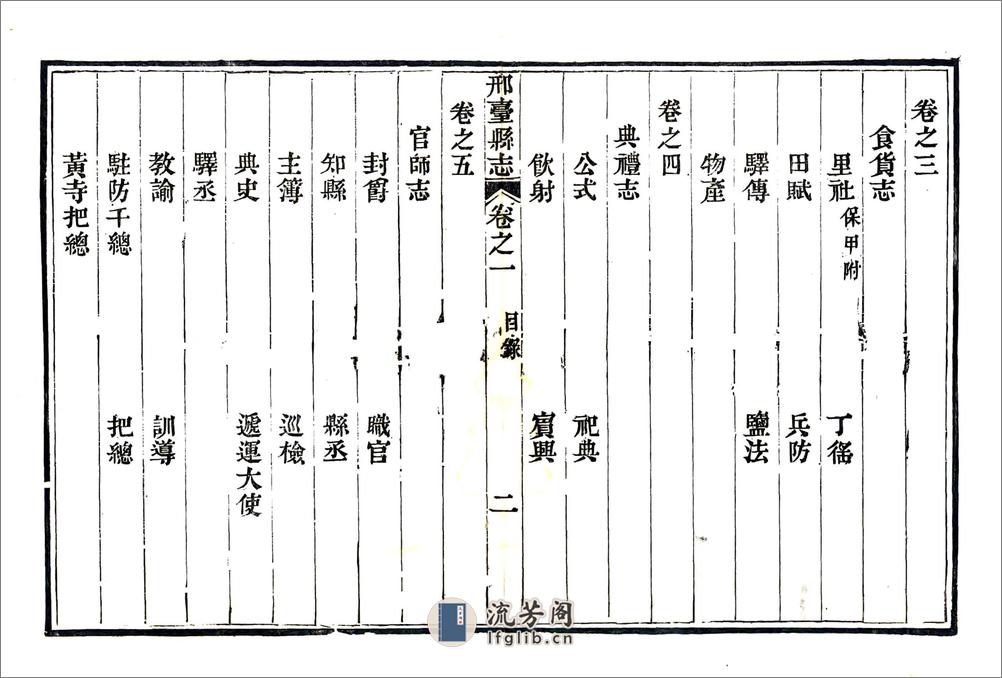 卷之三
食貨志
里社保甲附 丁徭
田賦 兵防
驛傳 鹽法
物產
卷之四
典禮志
公式 祀典
飲射 賔興
邢臺縣志 卷之一 目錄 二
卷之五
官師志
封爵 職官
知縣 縣丞
主簿 巡檢
典史 遞運大使
驛丞
教諭 訓導
駐防千總 把總
黃寺把總
流芳阁
lfglib.cn